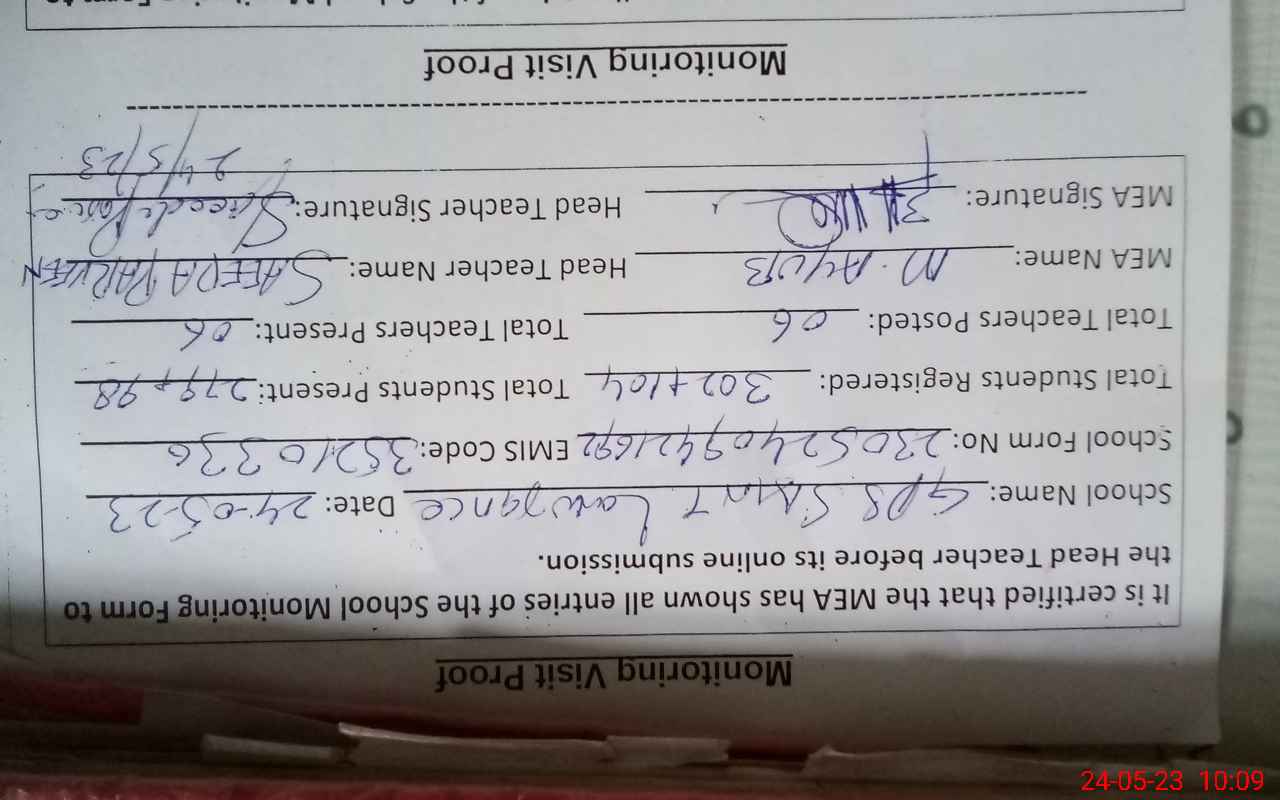 Monitoring Visit Proof
It is certified that the MEA has shown all entries of the School Monitoring Form to
the Head Teacher before its online submission.
School Name: GPS SAINT Lawrance Date: 24-05-23
School Form No: 230524079421692 EMIS Code: 35210336
Total Students Registered: 302+104 Total Students Present: 279+98
Total Teachers Posted: 06 Total Teachers Present: 06
MEA Name: M. AYUB Head Teacher Name: SAEEDA PARVEEN
MEA Signature: Head Teacher Signature: Saeeda Parveen
24/5/23
Monitoring Visit Proof
24-05-23 10:09